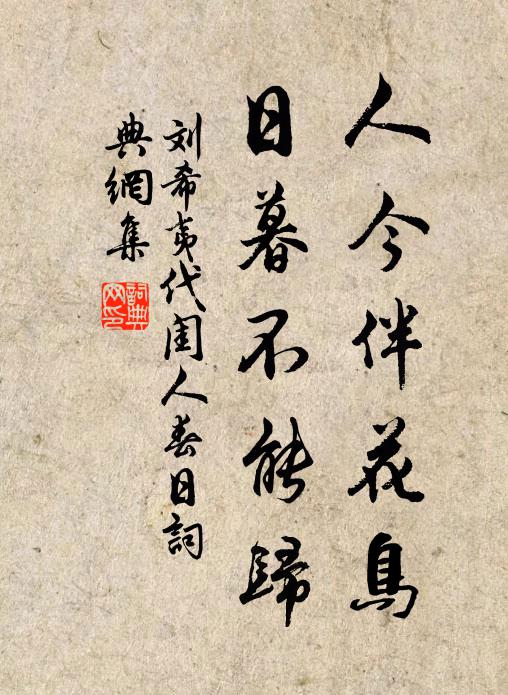 人今伴花鳥
日暮不能歸
刘希夷代闺人春日詞
典網集
詞典
网印